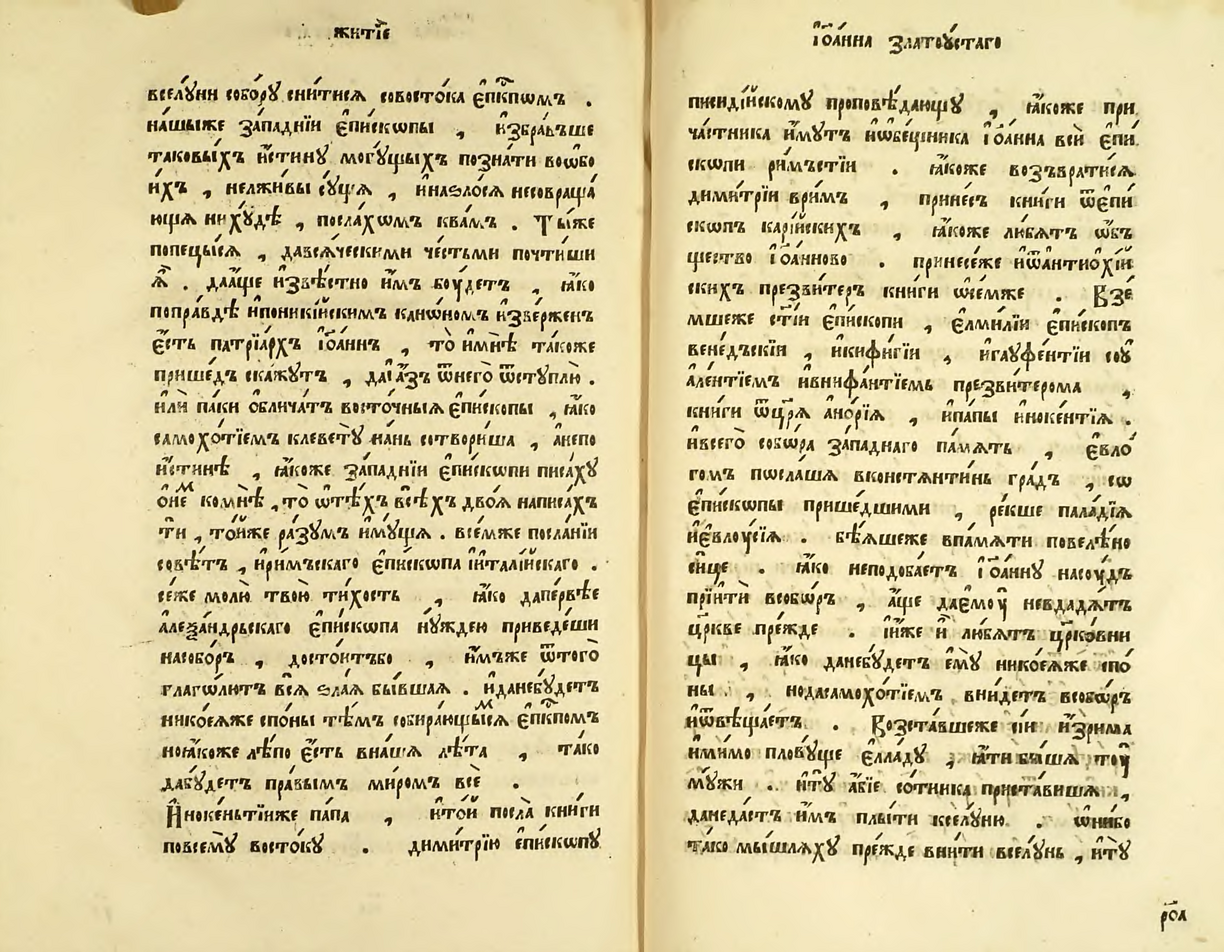 житїе
вселꙋни собо́рꙋ сни́тисѧ совосто́ка є҆пк҃пѡмъ .
на́шыже за́паднїи є҆пи́скѡпы , и҆збра́въше
таковы́хъ и҆́стинꙋ могꙋ́щыхъ позна́ти воѡбо
и҆́хъ , нелжи́вы сꙋ́щѧ , инаѕло́сѧ несовраща́
ющѧ ни хꙋ́дѣ , посла́хѡмъ ква́мъ . Ты́же
попецы́сѧ , давсѧ́ческими че́стьми почти́ши
ѧ҆̀ . даа́ще и҆звѣ́стно и҆̀мъ бꙋ́детъ , ꙗ҆́ко
попра́вдѣ и҆поники́искимъ канѡ́номъ и҆зве́рженъ
є҆́сть патрїа́рхъ і҆ѡа́ннъ , то̀ и҆мнѣ̀ та́коже
прише́дъ ска́жꙋтъ , даі҆а҆́зъ ѿнего̀ ѿстꙋплю̀ .
и҆лѝ па́ки ѡ҆блича́тъ восто́чныѧ є҆пи́скопы , ꙗ҆́ко
самохо́тїемъ клеветꙋ̀ на́нь сотвори́ша , анепо
и҆́стинѣ , ꙗ҆́коже за́паднїи є҆пи́скѡпи писа́хꙋ
ѡ҆не́м комнѣ̀ , то̀ ѿтѣ́хъ всѣ́хъ дво́ѧ написа́хъ
тѝ , то́йже ра́зꙋмъ и҆мꙋ́щѧ . все́мже посла́нїи
совѣ́тъ , и҆ри́мъскаго є҆пи́скѡпа і҆італи́йскаго .
се́же молю̀ твою̀ ти́хость , ꙗ҆́ко дапе́рвѣе
алеѯа́ндрьскаго є҆пи́скѡпа нꙋ́ждею приведе́ши
насобо́ръ , досто́итъбо , и҆́мъже ѿтого̀
глаго́лютъ всѧ̀ ѕла́ѧ бы́вшаѧ . иданебꙋ́детъ
никоеѧ́же спо́ны тѣ́мъ собира́ющымсѧ є҆пк҃помъ
ноꙗ҆́коже лѣ́по є҆́сть вна́шѧ лѣ́та , та́ко
дабꙋ́детъ пра́вымъ ми́ромъ всѐ .
И҆ноке́ньтїиже па́па , и҆то́й посла̀ кни́ги
повсемꙋ̀ восто́кꙋ . дими́трїю є҆пи́скѡпꙋ
і҆ѡа́нна златоꙋ́стаго
писиді́йскомꙋ проповѣ́дающꙋ , ꙗ҆́коже при
ча́стника и҆́мꙋтъ иѡ҆бе́щника і҆ѡа́нна всѝ є҆пи
скѡпи ри́мъстїи . ꙗ҆́коже возъврати́сѧ
дими́трїи ври́мъ , прине́съ кни́ги ѿє҆пи
скѡпъ кари́йскихъ , ꙗ҆́коже лю́бѧтъ ѡ҆́бъ
щество і҆ѡа́нново . принесе́же иѿантиохі́й
скихъ презви́теръ кни́ги ѡ҆се́мже . Взе́
мшеже ст҃і́и є҆пи́скопи , є҆лми́лїи є҆пи́скопъ
вене́дъскїи , икифи́гїи , игаꙋфе́нтїи соꙋ
але́нтїемъ ивнифа́нтїемь презви́терома ,
кни́ги ѿцр҃ѧ̀ ано́рїѧ , ипа́пы иноке́нтїѧ .
ивсего̀ собѡ́ра за́паднаго па́мѧть , є҆вло́
гомъ посла́шѧ вконстѧнти́нь гра́дъ , сѡ
є҆пи́скѡпы прише́дшими , ре́кше пала́дїѧ
иє҆влоу́сїѧ . бѣ́ѧшеже впа́мѧти повелѣ́но
си́це . ꙗ҆́ко неподоба́етъ і҆ѡа́ннꙋ насꙋ́дъ
прїитѝ всобѡ́ръ , а҆́ще даємоу̀ невдадѧ́тъ
цр҃кве пре́жде . і҆и҆́же и҆ лю́бѧтъ цр҃ко́вни
цы , ꙗ҆́ко данебꙋ́детъ є҆мꙋ̀ никоеѧ́же спо
ны , нодасамохо́тїемъ вни́детъ всобѡ́ръ
иѿвѣща́етъ . Возста́вшеже сі́и и҆зри́ма
и҆ми́мо пловꙋ́ще є҆лла́дꙋ , ꙗ҆́ти бы́шѧ тоу̀
мꙋ́жи . итꙋ̀ а҆́бїе со́тника приста́вишѧ ,
данеда́стъ и҆́мъ плы́ти кселꙋ́ню . ѡ҆ни́бо
та́ко мы́шлѧхꙋ пре́жде вни́ти вселꙋ́нь , итꙋ̀
рѻ҃а